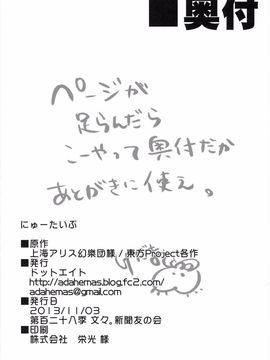 ■奥付
ページが
足らんだら
こーやって奥付だか
あとがきに使え。
にゅーたいぷ
■原作
上海アリス幻樂団様 / 東方Project各作
■発行
ドットエイト
http://adahemas.blog.fc2.com/
adahemas@gmail.com
■発行日
2013/11/03
第百二十八季 文々。新聞友の会
■印刷
株式会社 栄光 様